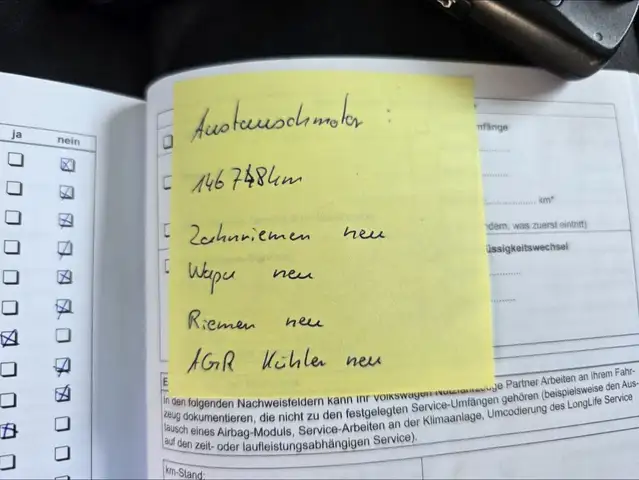 ja nein
Austauschmotor :
146 748km
Zahnriemen neu
Wapu neu
Riemen neu
AGR Kühler neu
mfänge
km*
dern, was zuerst eintritt)
üssigkeitswechsel
E
In den folgenden Nachweisfeldern kann Ihr Volkswagen Nutzfahrzeuge Partner Arbeiten an Ihrem Fahr-
zeug dokumentieren, die nicht zu den festgelegten Service-Umfängen gehören (beispielsweise den Aus-
tausch eines Airbag-Moduls, Service-Arbeiten an der Klimaanlage, Umcodierung des LongLife Service
auf den zeit- oder laufleistungsabhängigen Service).
km-Stand: